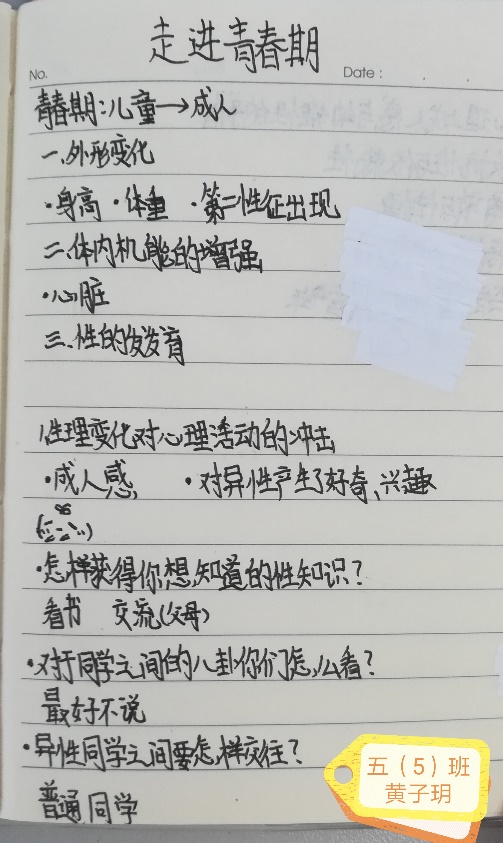 走进青春期
No.
Date:
青春期:儿童→成人
一.外形变化
·身高 ·体重 ·第二性征出现
二.体内机能的增强
·心脏
三.性的发育
性理变化对心理活动的冲击
·成人感 ·对异性产生了好奇、兴趣
·怎样获得你想知道的性知识?
看书 交流(父母)
·对于同学之间的八卦你们怎么看?
最好不说
·异性同学之间要怎样交往?
普通同学
五(5)班
黄子玥